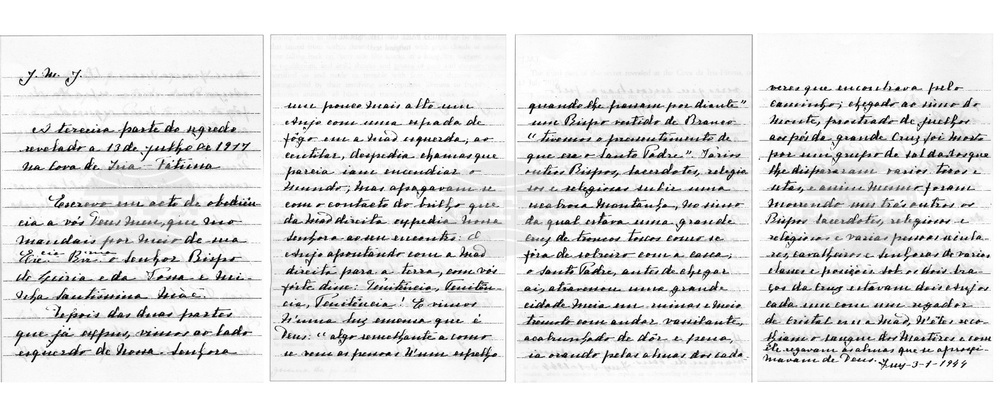 J. M. J.
A terceira parte do segredo
revelado a 13 de julho de 1917
na Cova de Iria-Fátima
Escrevo em acto de obediên-
cia a vós Deus meu, que mo
mandais por meio de sua
Ex.cia Rev.ma o Senhor Bispo
de Leiria e da Vossa e mi-
nha Santíssima Mãe.
Depois das duas partes
que já expus, vimos ao lado
esquerdo de Nossa Senhora
um pouco mais alto um
Anjo com uma espada de
fôgo em a mão esquerda; ao
centilar, despedia chamas que
parecia iam encendiar o
mundo; mas apagavam-se
com o contacto do brilho que
da mão direita expedia Nossa
Senhora ao seu encontro: O
Anjo apontando com a mão
direita para a terra, com vós
forte disse: Penitência, Penitên-
cia, Penitência! E vimos
n'uma luz emensa que é
Deus: "algo semelhante a como
se vem as pessoas n'um espelho
quando lhe passam por diante"
um Bispo vestido de Branco
"tivemos o pressentimento de
que era o Santo Padre". Varios
outros Bispos, Sacerdotes, religio
sos e religiosas subir uma
escabrosa montanha, no simo
da qual estava uma grande
Cruz de troncos toscos como se
fôra de sobreiro com a casca;
o Santo Padre, antes de chegar
aí, atravessou uma grande
cidade meia em ruinas e meio
trémulo com andar vassilante,
acabrunhado de dôr e pena,
ia orando pelas almas dos cada
veres que encontrava pelo
caminho; chegado ao simo do
monte, prostrado de juelhos
aos pés da grande Cruz foi morto
por um grupo de soldados que
lhe dispararam varios tiros e
setas, e assim mesmo foram
morrendo uns trás outros os
Bispos Sacerdotes, religiosos e
religiosas e varias pessoas secula-
res, cavalheiros e senhoras de varias
classes e posições. Sob os dois bra-
ços da Cruz estavam dois Anjos
cada um com um regador
de cristal em a mão, n'êles reco-
lhiam o sangue dos Martires e com
êle regavam as almas que se aproxi-
mavam de Deus.
Tuy-3-1-1944